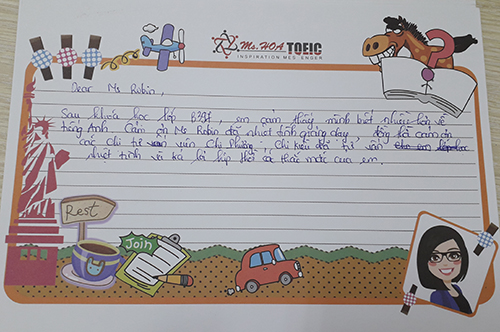 Ms. HOA TOEIC
INSPIRATION MEG-ENDER
Dear Ms Robin,
Sau khóa học lớp B397, em cảm thấy mình biết nhiều hơn về
tiếng Anh. Cảm ơn Ms Robin đã nhiệt tình giảng dạy. Đồng thời cảm ơn
các chị tư vấn Chị Phương, Chị Kiều đã tư vấn
nhiệt tình và trả lời kịp thời các thắc mắc của em.
Rest
Join